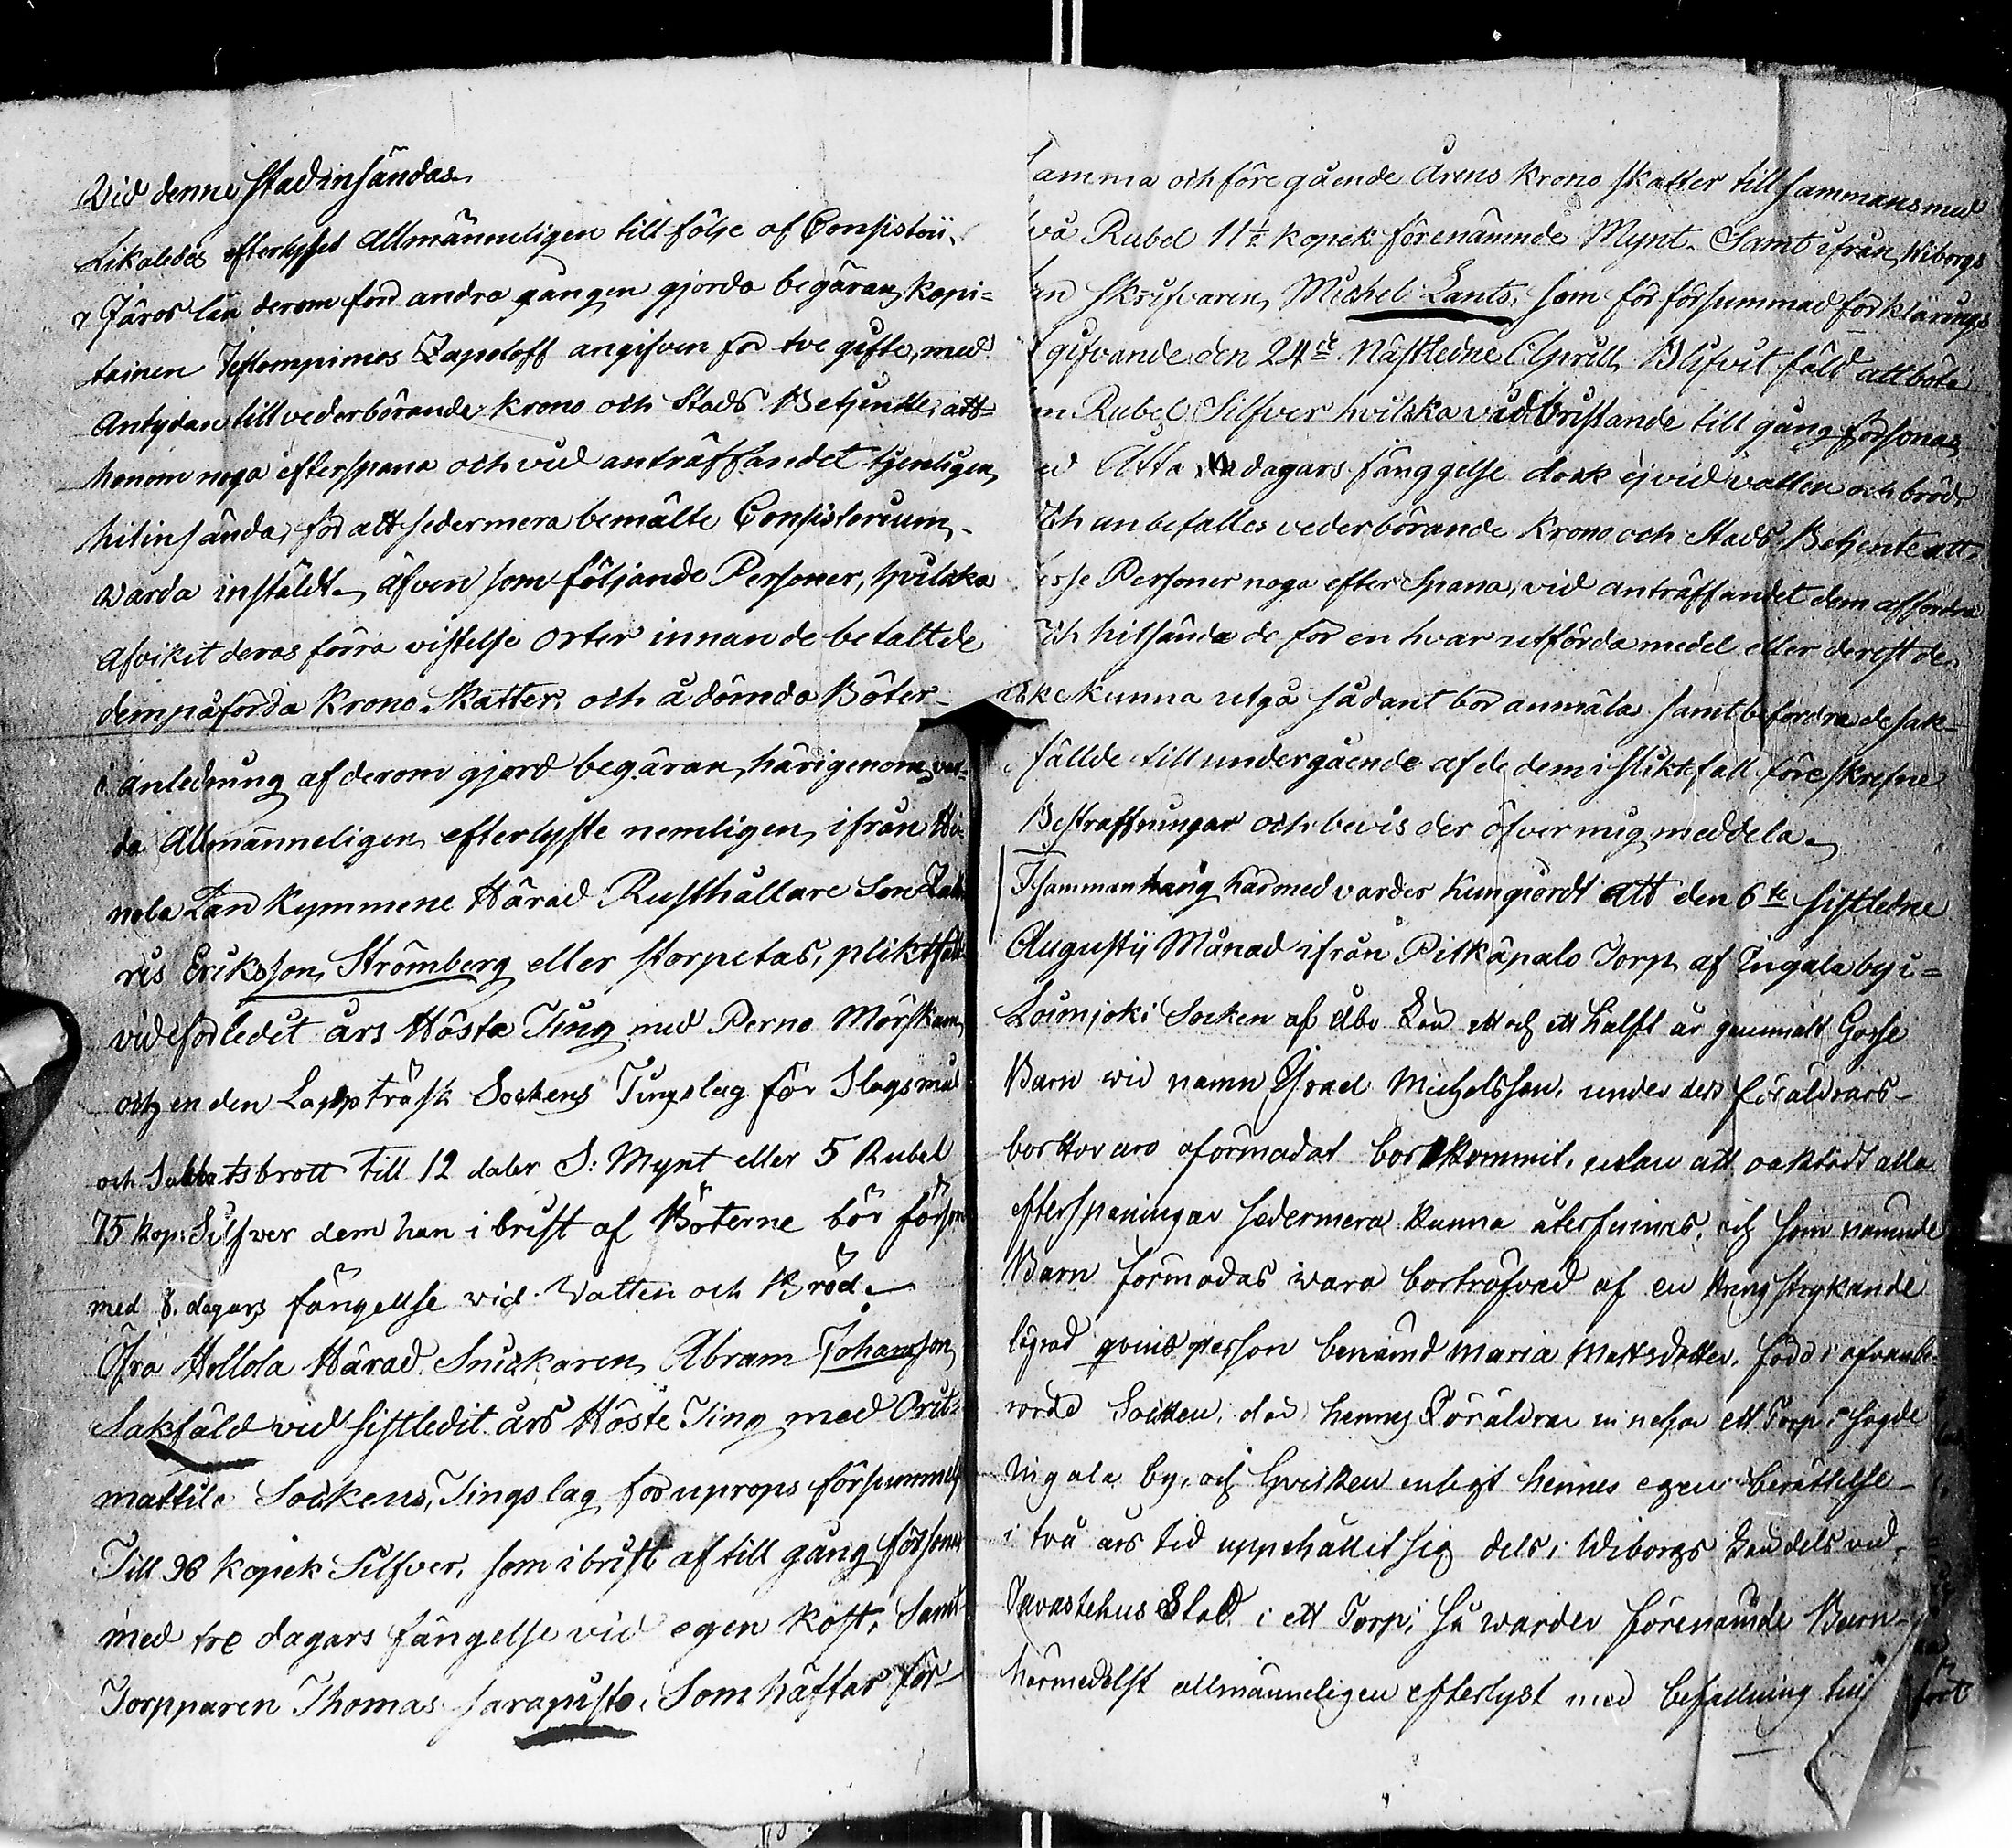 Vid denne stad insändas
Likaledes efterlyses Allmänneligen till följe af Consistorii
Järos län derom förd andra gången gjorda begäran, Kapi=
tainen Zapoloff angifven för tve gifte, med
Antydan till vederbörande Krono och Stads Betjente, att
honom noga efterspana och vid anträffandet tjenligen
hitinsända, för att sedermera bemälte Consistorium,
varda instäldt, äfven som följande Personer, hvilcka
Afvikit deras förra vistelse orter innan de betalt de
dem påförda Krono Skatter, och å dömda Böter
i anledning af derom gjord begäran, härigenom var-
da Allmänneligen efterlyste nemligen, ifrån Hei-
nola Län Kymmene Härad Rusthållare Son
ris Eriksson Strömberg eller storpetas, pliktfäld
vid förledet års Höste Ting med Perno Mörskom
och en den Lappträsk Sockens Tingslag för Slagsmål
och Sabbatsbrott till 12 daler S: Mynt eller 5 Rubel
75 kop: Silfver dem han i brist af Böterne bör förson
med 8. dagars fängelse vid Vatten och Bröd.
Öfra Hollola Härad Snickaren Abram Johansson
Sakfäld vid sistledit års Höste Ting med Orit-
mattila Sockens, Tingslag för uprops försummelse
Till 98 kopek Silfver, som i brist af till gång försonas
med tre dagars fängelse vid egen kost, Samt
Torpparen Thomas Sarapisto, Som häftar för
samma och föregående Årens Krono skatter tillsammans med
två Rubel 11½ kopek förenämnde Mynt. Samt ifrån, Wiborgs
län Skrifvaren, Michel Lants, som för försummad förklarings
gifvande den 24de Nästledne Aprill Blifvit fäld att böta
en Rubel Silfver hvilcka vid bristande till gång försonas
ed Åtta dagars fänggelse dock ej vid vatten och bröd,
Och anbefalles vederbörande Krono och Stads Betjente att
esse Personer noga efter Spana, vid anträffandet dem affordra
Och hitsända de för en hvar utförda medel eller derest de
icke kunna utgå sådant bör anmäla samt befordra de sak-
fällde till undergående af de dem i slikt fall föreskrefne
Bestraffningar och bevis der öfver mig meddela.
I sammanhang härmed vardes kungjordt att den 6te sistledne
Augustii Månad ifrån Pitkäpalo Torp af Ingala by i=
Loimjoki Socken af Åbo Län ett och ett halft år gammalt Gosse
Barn vid namn Israel Michelsson, under dess föräldrars
borttovaro oförmodat bortkommit, utan att oaktadt alla
efterspaningar sedermera kunna återfinnas, och som nämnde
Barn förmodas wara bortröfvad af en kring strykande
legad qvinsperson benämnd Maria Mattsdotter, född i ofvanbe-
rörde Socken, der hennes Föräldrar innehar ett Torp i sagde
Ingala by, och hvilken enligt hennes egen berättelse
i två års tid uppehållit sig dels i Wiborgs Län dels vid
Tavastehus Stad i ett Torp; Så warder förenämnde Barn
härmedelst allmänneligen efterlyst med befallning till